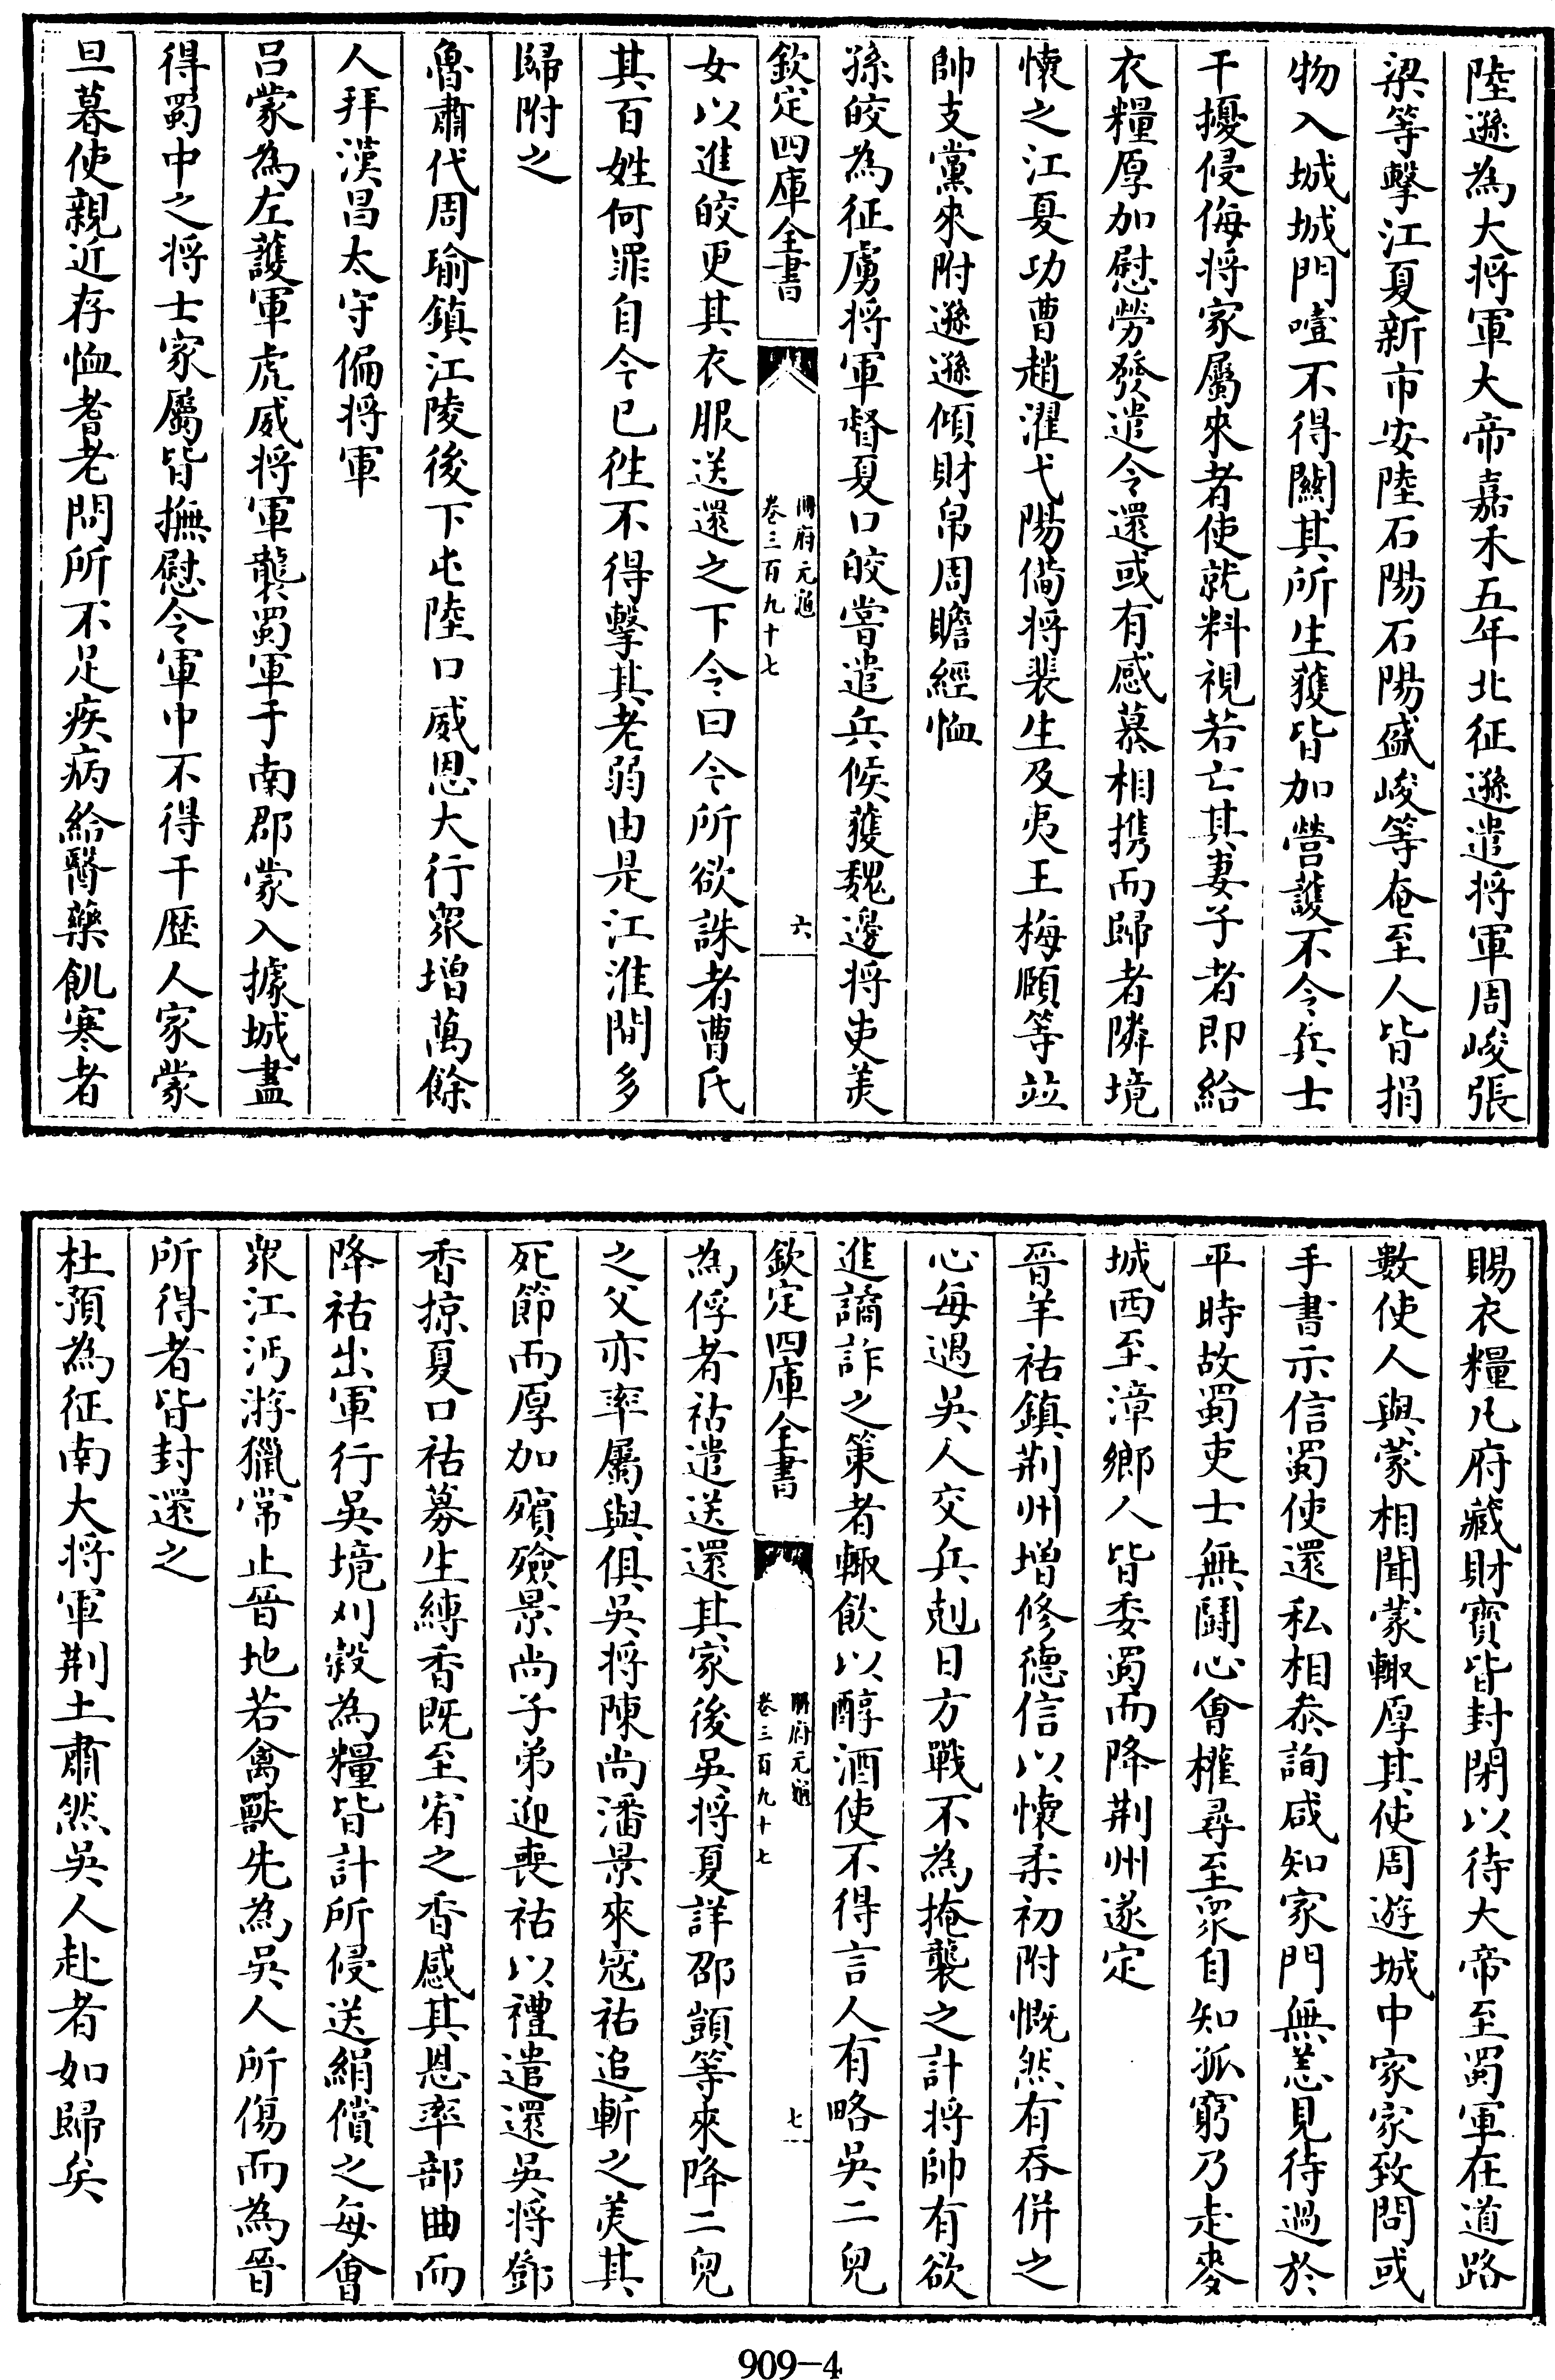 陸遜為大將軍大帝嘉禾五年北征遜遣將軍周峻張
梁等擊江夏新市安陸石陽石陽盛峻等奄至人皆捐
物入城城門噎不得關其所生獲皆加營護不令兵士
干擾侵侮將家屬來者使就料視若亡其妻子者即給
衣糧厚加慰勞發遣令還或有感慕相携而歸者隣境
懷之江夏功曹趙濯弋陽備將裴生及夷王梅頤等竝
帥支黨來附遜遜傾財帛周贍經恤
孫皎為征虜將軍督夏口皎嘗遣兵候獲魏邊將吏美
欽定四庫全書
冊府元龜
卷三百九十七
六
女以進皎更其衣服送還之下令曰今所欲誅者曹氏
其百姓何罪自今已徃不得擊其老弱由是江淮間多
歸附之
魯肅代周瑜鎮江陵後下屯陸口威恩大行衆增萬餘
人拜漢昌太守偏將軍
呂蒙為左護軍虎威將軍襲蜀軍于南郡蒙入據城盡
得蜀中之將士家屬皆撫慰令軍中不得干歷人家蒙
旦暮使親近存恤耆老問所不足疾病給醫藥飢寒者
賜衣糧凡府藏財寶皆封閉以待大帝至蜀軍在道路
數使人與蒙相聞蒙輙厚其使周遊城中家家致問或
手書示信蜀使還私相叅詢咸知家門無恙見待過於
平時故蜀吏士無鬬心會權尋至衆自知孤窮乃走麥
城西至漳鄉人皆委蜀而降荆州遂定
晉羊祜鎮荆州增修德信以懷柔初附慨然有吞併之
心每遇吳人交兵剋日方戰不為掩襲之計將帥有欲
進譎詐之策者輙飲以醇酒使不得言人有略吳二兒
欽定四庫全書
冊府元龜
卷三百九十七
七
為俘者祜遣送還其家後吳將夏詳邵顗等來降二兒
之父亦率屬與俱吳將陳尚潘景來寇祜追斬之美其
死節而厚加殯殮景尚子弟迎喪祜以禮遣還吳將鄧
香掠夏口祜募生縛香既至宥之香感其恩率部曲而
降祜出軍行吳境刈穀為糧皆計所侵送絹償之每會
衆江沔游獵常止晉地若禽獸先為吳人所傷而為晉
所得者皆封還之
杜預為征南大將軍荆土肅然吳人赴者如歸矣
909-4